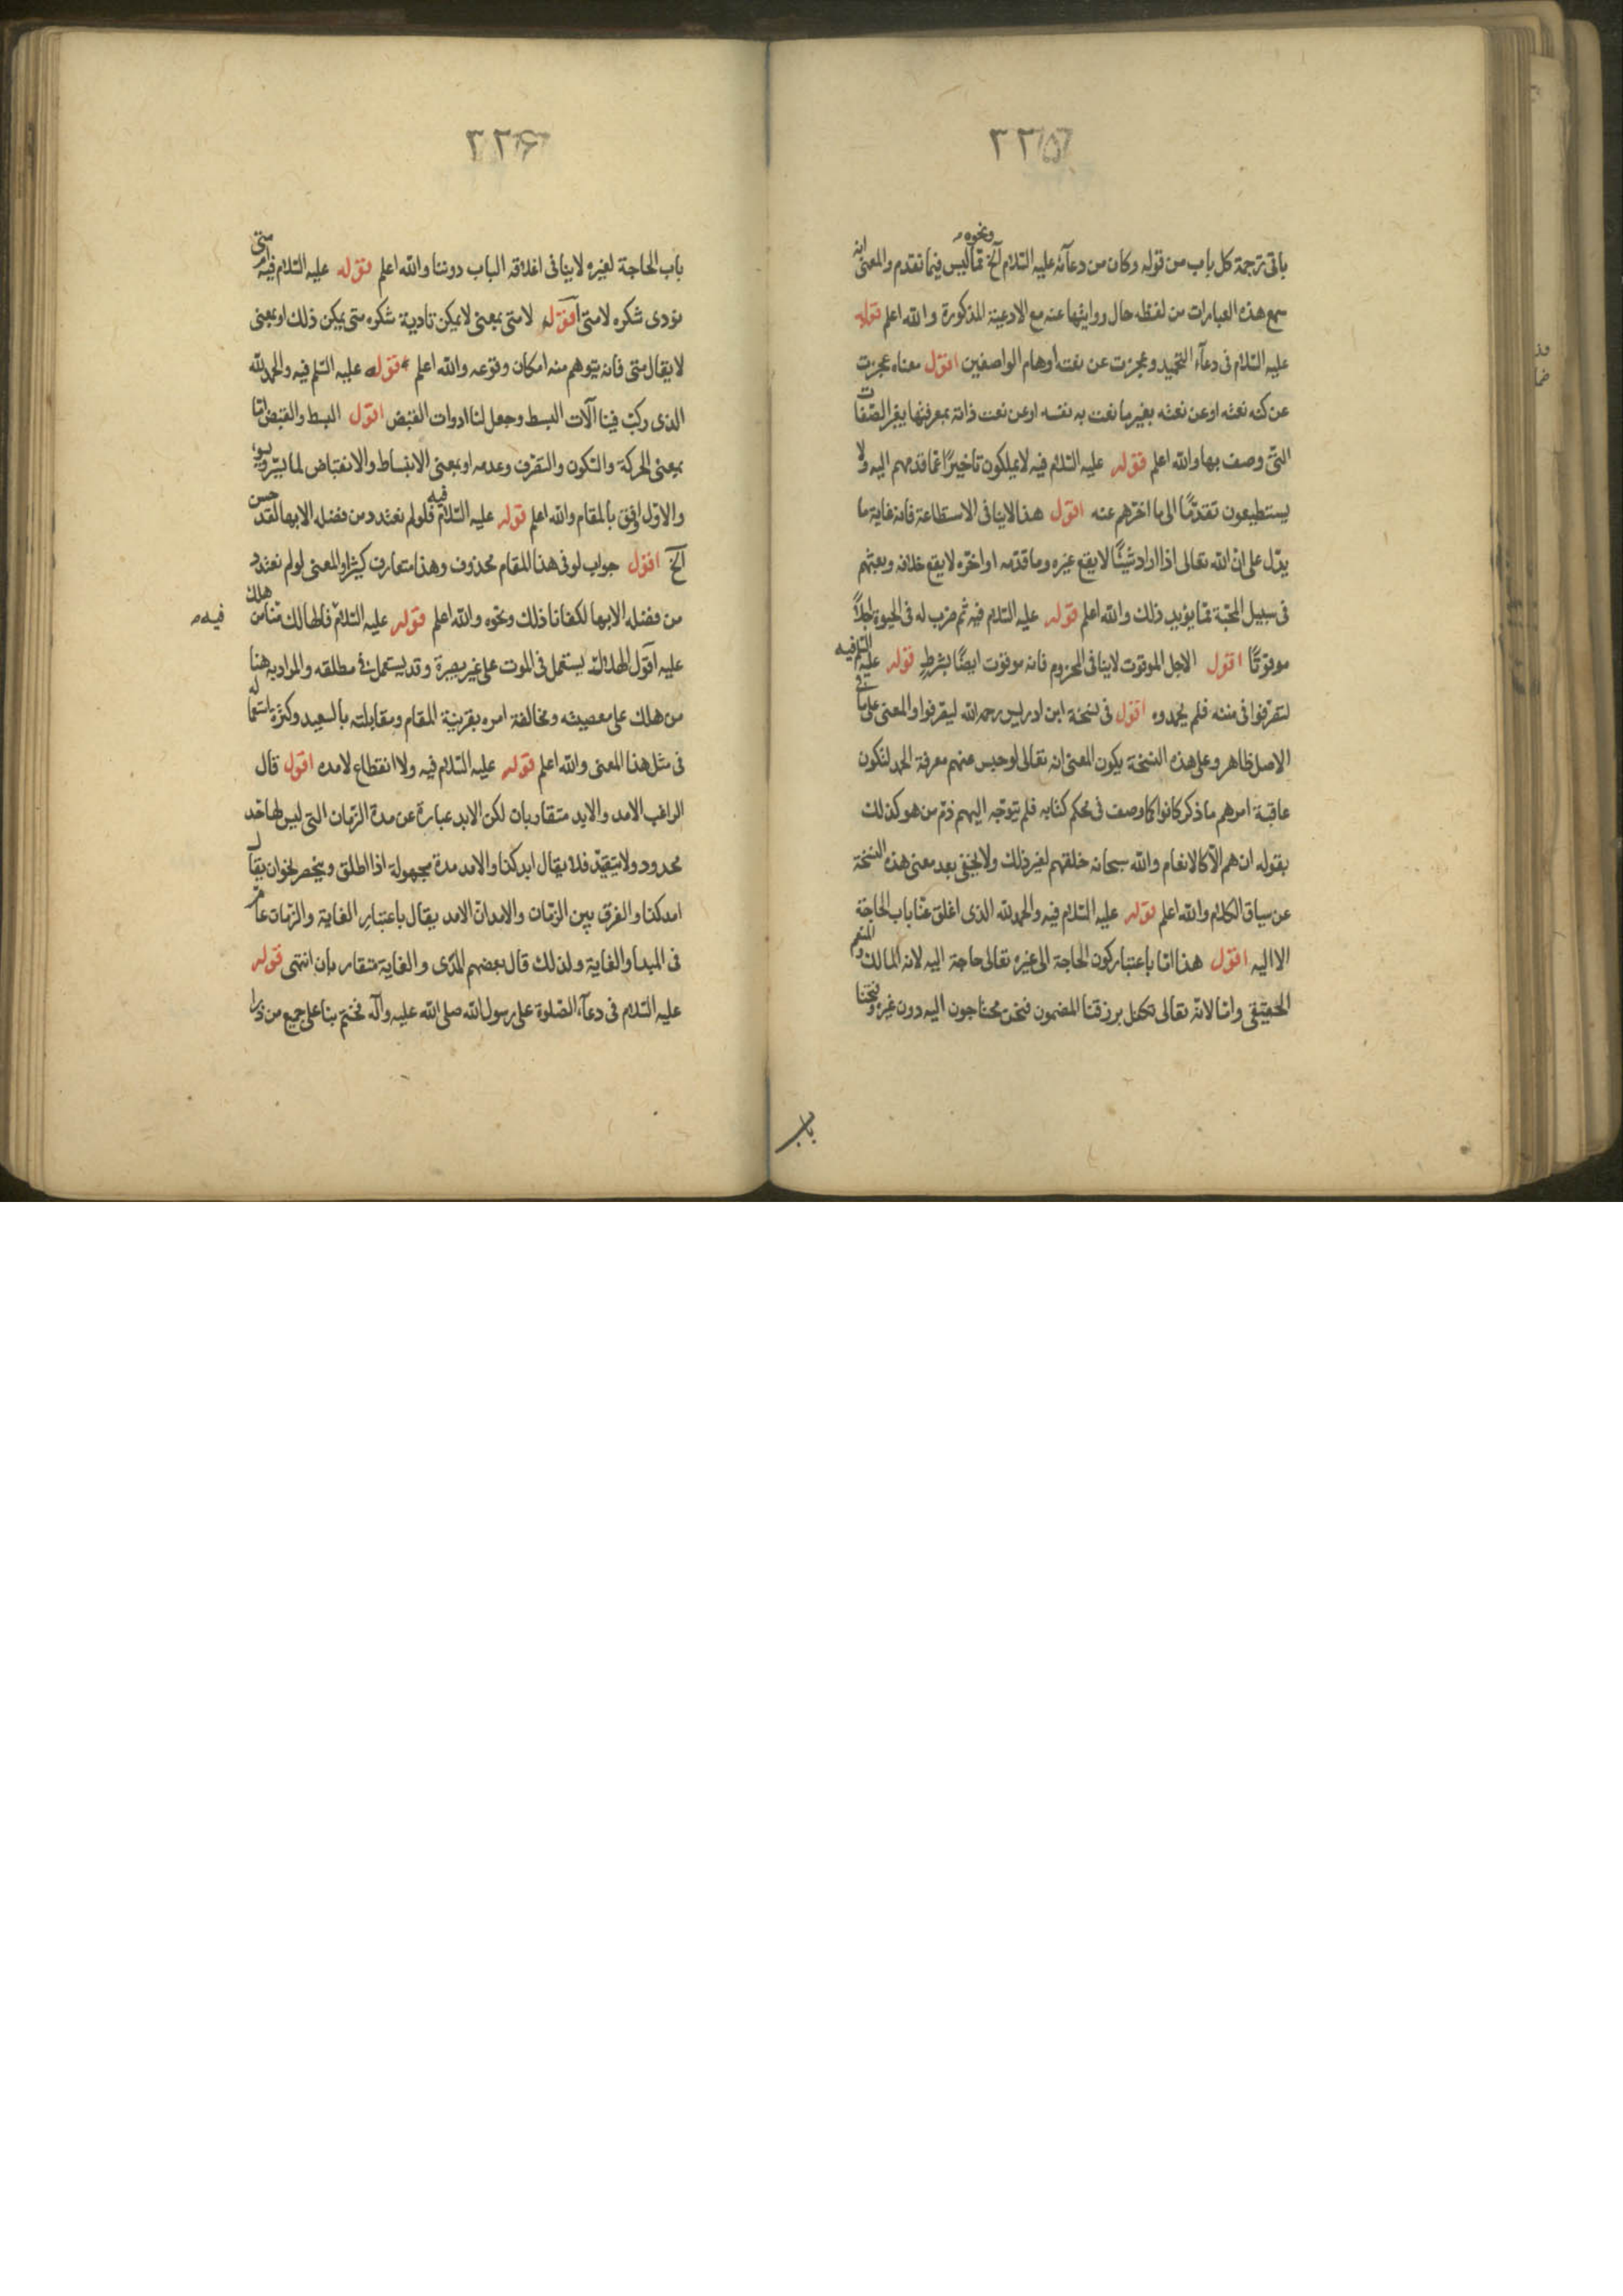 ٣٢٥
باقى ترجمة كل باب من قوله وكان من دعآئه عليه السّلام آلخ ونحوه ممّا ليس فيما تقدم والمعنى انه
سمع هذه العبارات من لفظه حال روايتها عنه مع الادعية المذكورة والله اعلم قوله
عليه السّلام فى دعآء التحميد وعجزت عن نعته اوهام الواصفين اقول معناه عجزت
عن كنه نعته او عن نعته بغير ما نعت به نفسه او عن نعت ذاته بمعرفتها بغير الصّفات
التى وصف بها والله اعلم قوله عليه السّلام فيه لا يملكون تاخيرًا عمّا قدمهم اليه ولا
يستطيعون تقدمًا الى ما اخرهم عنه اقول هذا لا ينافى الاستطاعة فانه غاية ما
يدل على انّ الله تعالى اذا اراد شيئًا لا يقع غيره وما قدّمه او اخّره لا يقع خلافه وبعثهم
فى سبيل المحبّة ممّا يؤيد ذلك والله اعلم قوله عليه السّلام فيه ثم ضرب له فى الحيوة اجلاً
موقوتًا اقول الاجل الموقوت لا ينافى المحزوم فانه موقوت ايضًا بشرطٍ قوله عليه السّلم فيه
لتصرّفوا فى مننه فلم يحمدوه اقول فى نسخة ابن ادريس رحمه الله ليقرفوا والمعنى على ما فى
الاصل ظاهر وعلى هذه النسخة يكون المعنى انه تعالى لو حبس عنهم معرفة الحمد لتكون
عاقبة امرهم ما ذكر كانوا كما وصف فى محكم كتابه فلم يتوجّه اليهم ذمّ من هو كذلك
بقوله ان هم الّا كالانعام والله سبحانه خلقهم لغير ذلك ولا يخفى بعد معنى هذه النسخة
عن سياق الكلام والله اعلم قوله عليه السّلام فيه والحمد لله الذى اغلق عنّا باب الحاجة
الا اليه اقول هذا امّا باعتبار كون الحاجة الى غيره تعالى حاجة اليه لانه المالك والمنعم
الحقيقى وامّا لانّه تعالى تكفل برزقنا المضمون فنحن محتاجون اليه دون غيره وفتحنا
باب
٣٢۶
باب الحاجة لغيره لا ينافى اغلاقه الباب دوننا والله اعلم قوله عليه السّلام فيه ام متى
نؤدى شكره لا متى اقول لا متى بمعنى لا يمكن تادية شكره متى يمكن ذلك او بمعنى
لا يقال متى فانه يتوهم منه امكان وقوعه والله اعلم قوله عليه السّلم فيه والحمد لله
الذى ركّب فينا آلات البسط وجعل لنا ادوات القبض اقول البسط والقبض امّا
بمعنى الحركة والسّكون والتصّرف وعدمه او بمعنى الانبساط والانقباض لما يسّر ويسوء
والاوّل اوفق بالمقام والله اعلم قوله عليه السّلام فيه فلو لم نعتدد من فضله الا بها لقد حسن
آلخ اقول جواب لو فى هذا المقام محذوف وهذا متعارف كثيرًا والمعنى لو لم نعتدد
من فضله الا بها لكفانا ذلك ونحوه والله اعلم قوله عليه السّلام فالهالك منّا من هلك
فيه
عليه اقول الهلاك يستعمل فى الموت على غير بصيرة وقد يستعمل فى مطلقه والمراد به هنا
من هلك على معصيته ومخالفة امره بقرينة المقام ومقابلته بالسعيد وكثرة استعماله
فى مثل هذا المعنى والله اعلم قوله عليه السّلام فيه ولا انقطاع لامده اقول قال
الراغب الامد والابد متقاربان لكن الابد عبارة عن مدة الزمان التى ليس لها حّد
محدود ولا يتقيّد فلا يقال ابد كذا والامد مدة مجهولة اذا اطلق وينحصر نحو ان يقال
امد كذا والفرق بين الزمان والامد انّ الامد يقال باعتبار الغاية والزمان عام
فى المبدا والغاية ولذلك قال بعضهم المدى والغاية متقاربان انتهى قوله
عليه السّلام فى دعآء الصّلوة على رسول الله صلى الله عليه وآله فختم بنا على جميع من ذرا